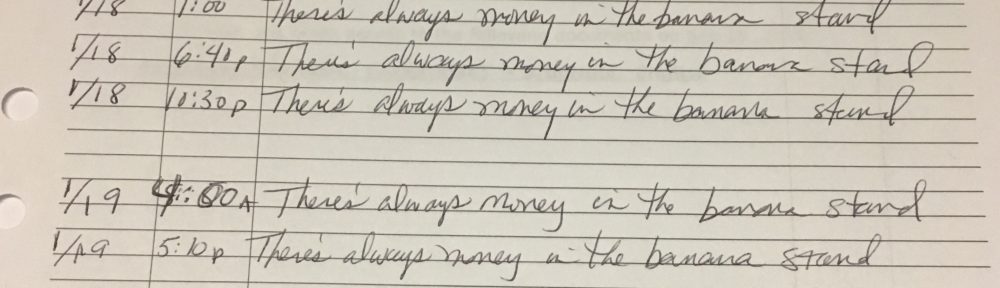 1/18 1:00 There's always money in the banana stand
1/18 6:40p There's always money in the banana stand
1/18 10:30p There's always money in the banana stand
1/19 :00A There's always money in the banana stand
1/19 5:10p There's always money in the banana stand